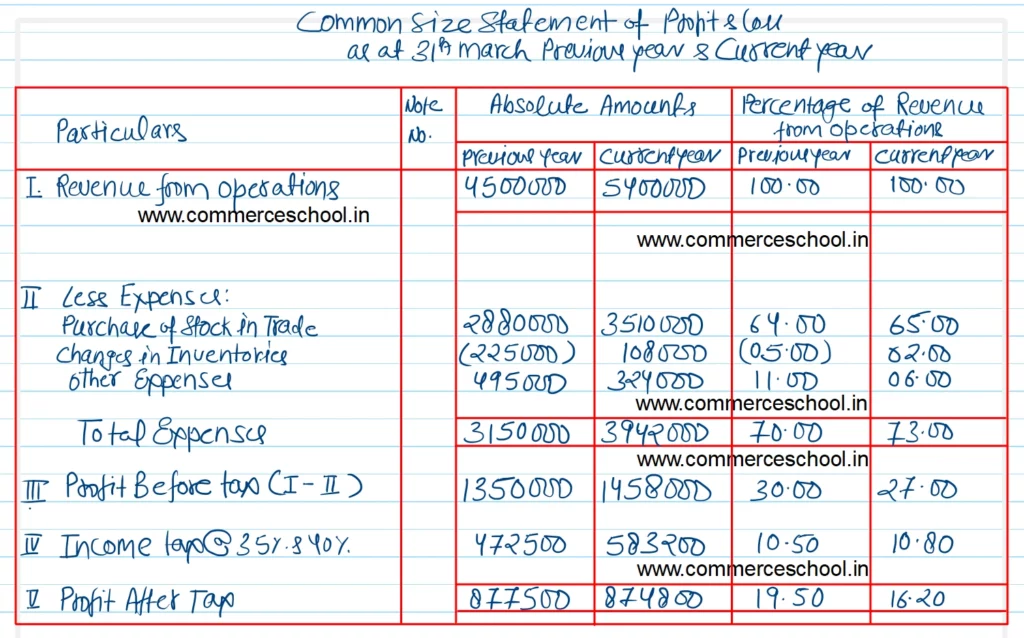 Common Size Statement of Profit & Loss
as at 31th March Previous year & Current year
Particulars Note No. Absolute Amounts Percentage of Revenue from operations
Previous year Current year Previous year Current year
I. Revenue from operations 4500000 5400000 100.00 100.00
www.commerceschool.in
www.commerceschool.in
II Less Expenses:
Purchase of Stock in Trade 2880000 3510000 64.00 65.00
Changes in Inventories (225000) 108000 (05.00) 02.00
Other Expenses 495000 324000 11.00 06.00
www.commerceschool.in
Total Expenses 3150000 3942000 70.00 73.00
www.commerceschool.in
III Profit Before tax (I - II) 1350000 1458000 30.00 27.00
IV Income tax @ 35%. & 40%. 472500 583200 10.50 10.80
www.commerceschool.in
V Profit After Tax 877500 874800 19.50 16.20